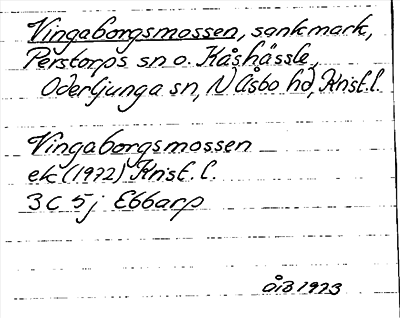 Vingaborgsmossen, sankmark,
Perstorps sn o. Kåshässle,
Oderljunga sn, N Åsbo hd, Krist. l.
Vingaborgsmossen
ek (1972) Krist. l.
3 C 5 j Ebbarp
ÅIB 1973